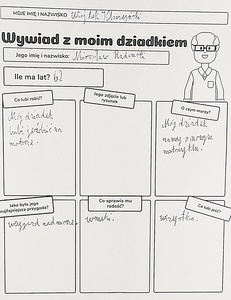 MOJE IMIĘ I NAZWISKO
Wywiad z moim dziadkiem
Jego imię i nazwisko: Mirosław
Ile ma lat? 62
Co lubi robić?
Mój dziadek
lubi jeździć na
motorze.
Jego zdjęcie lub
rysunek
O czym marzy?
Mój dziadek
marzy o nowym
motocyklu.
Jaka była jego
najfajniejsza przygoda?
wyjazd nad morze.
Co sprawia mu
radość?
wnuki.
Co lubi jeść?
wszystko.